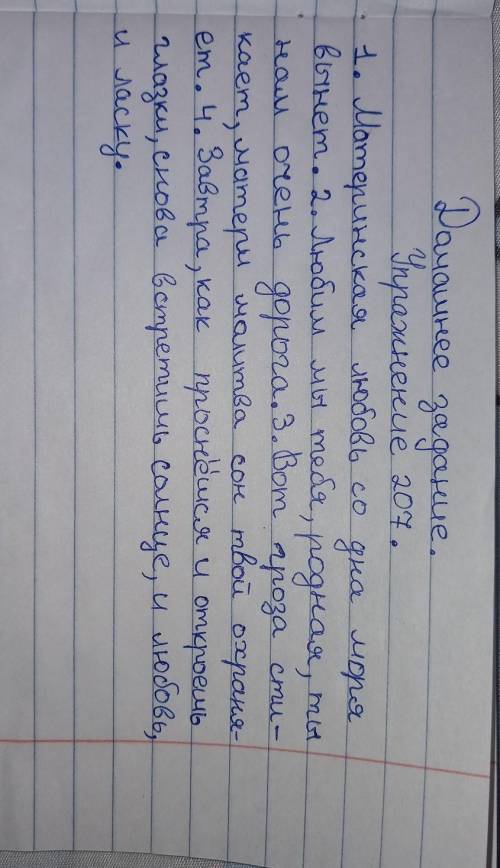 Домашнее задание.
Упражнение 207.
1. Материнская любовь со дна моря
вынет. 2. Любим мы тебя, родная, ты
нам очень дорога. 3. Вот гроза сти-
кает, матери молитва сон твой охраня-
ет. 4. Завтра, как проснёшся и откроешь
глазки, снова встретишь солнце, и любовь,
и ласку.